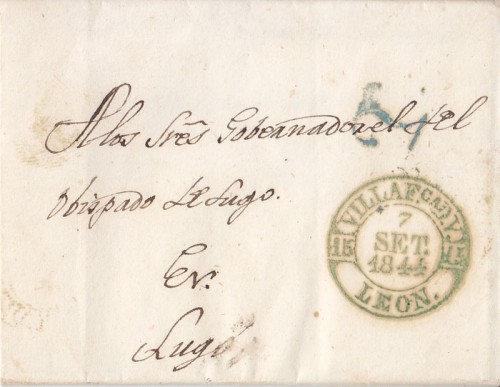 A los Srēs Gobernadores del
Obispado de Lugo.
En
Lugo
VILLAF.CA D V.
7
SET.
1844
15 15
LEON.